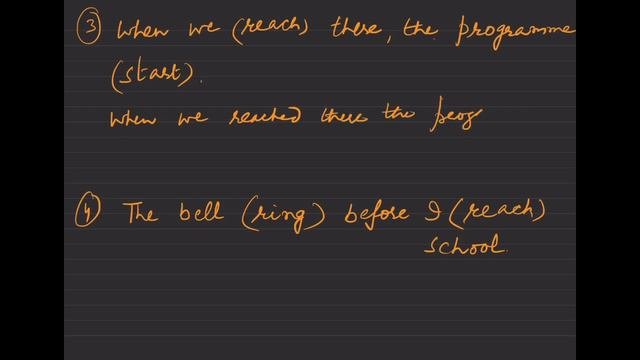 ③ When we (reach) there, the programme
(start).
When we reached there the prog
④ The bell (ring) before I (reach)
school.